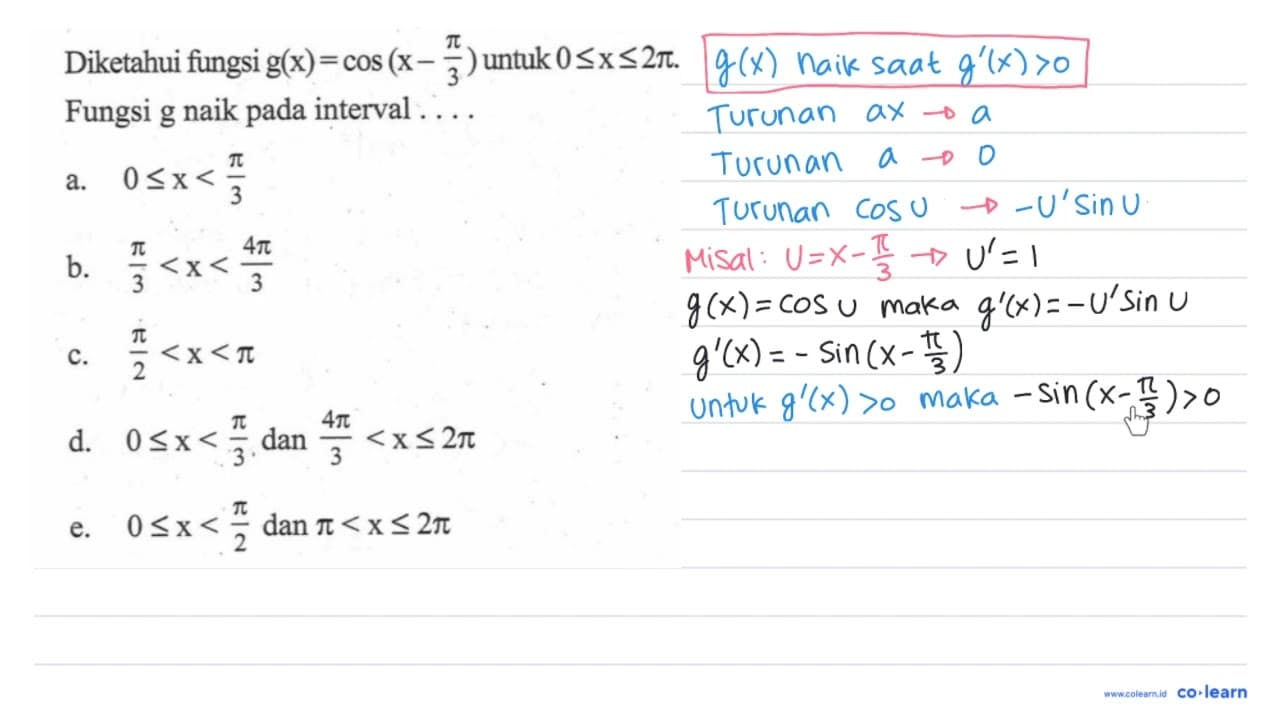 Diketahui fungsi g(x)=cos (x - π/3) untuk 0≤x≤2π.
Fungsi g naik pada interval . . . .
a. 0 ≤ x < π/3
b. π/3 < x < 4π/3
c. π/2 < x < π
d. 0 ≤ x < π/3 dan 4π/3 < x ≤ 2π
e. 0 ≤ x < π/2 dan π < x ≤ 2π
g(x) naik saat g'(x) > 0
Turunan ax → a
Turunan a → 0
Turunan cos U → -U' sin U
Misal: U = x - π/3 → U' = 1
g(x) = cos U maka g'(x) = -U' sin U
g'(x) = - sin (x - π/3)
Untuk g'(x) > 0 maka - sin (x - π/3) > 0
www.colearn.id co·learn